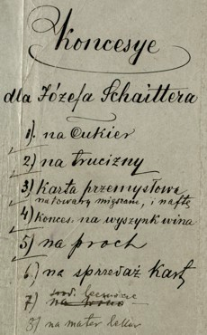 Koncesye
dla Józefa Schaittera
1). na Cukier
2) na trucizny
3) karta przemysłowa
na towary mięszan, i naftę
4) konces. na wyszynk wina
5) na proch
6) na sprzedaż kart
środ. lecznicze
7) na
8) na mater.